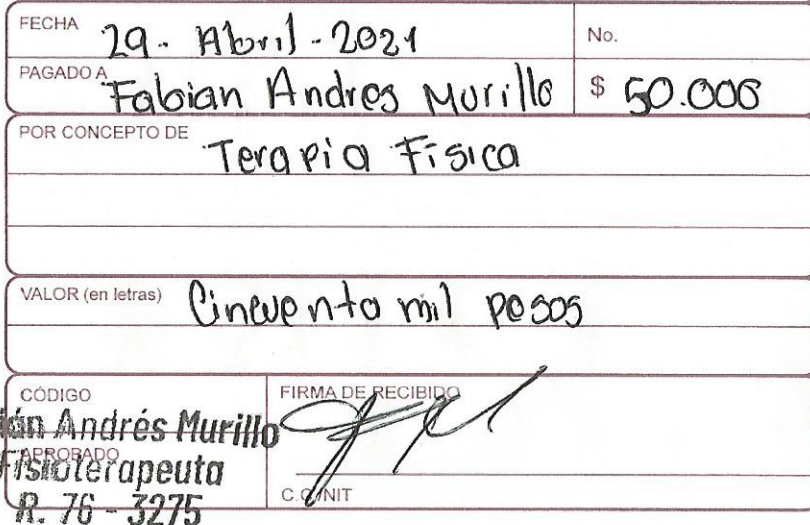 FECHA 29. Abril - 2021 No.
PAGADO A Fabian Andres Murillo $ 50.000
POR CONCEPTO DE Terapia Fisica
VALOR (en letras) Cincuenta mil pesos
CÓDIGO FIRMA DE RECIBIDO
ián Andrés Murillo
APROBADO
Fisioterapeuta
C.C/NIT
R. 76 - 3275